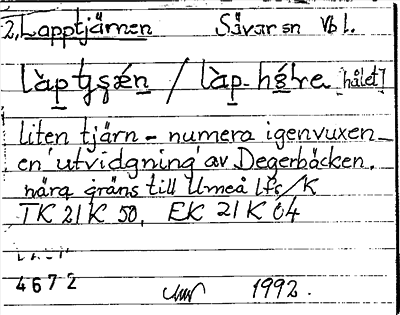 2, Lapptjärnen Sävar sn Vbl.
làptjsǽn / làp-hǿlre [hålet]
liten tjärn - numera igenvuxen -
en utvidgning av Degerbäcken.
nära gräns till Umeå lfs/K
TK 21 K 50, EK 21 K 04
4672 1992.